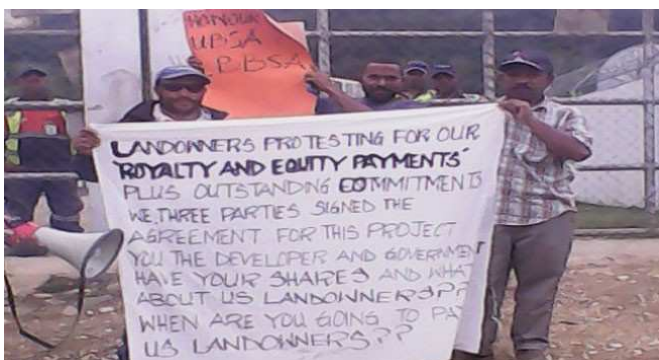 HONOUR
UBSA
LBBSA
LANDOWNERS PROTESTING FOR OUR
'ROYALTY AND EQUITY PAYMENTS'
PLUS OUTSTANDING COMMITMENTS
WE,THREE PARTIES SIGNED THE
AGREEMENT FOR THIS PROJECT
YOU THE DEVELOPER AND GOVERNMENT
HAVE YOUR SHARES AND WHAT
ABOUT US LANDOWNERS??
WHEN ARE YOU GOING TO PAY
US LANDOWNERS??